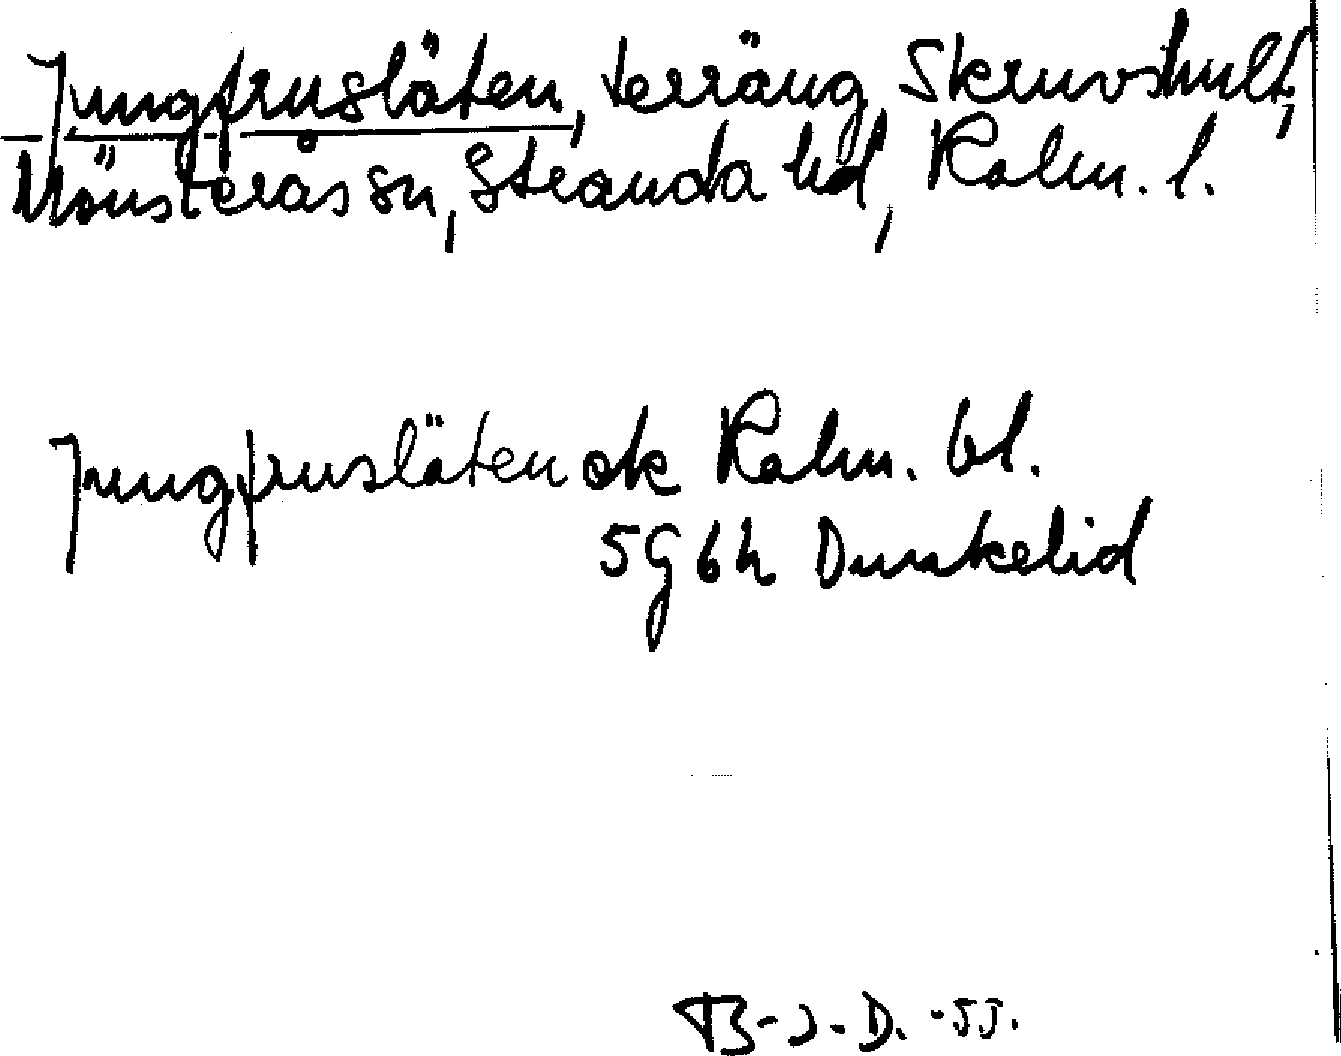 Jungfruslåten, terräng, Skruvshult,
Mönsterås sn, Stranda hd, Kalm. l.
Jungfruslåten ek Kalm. bl.
5G6h Dunkelid
B-J-D.-55.